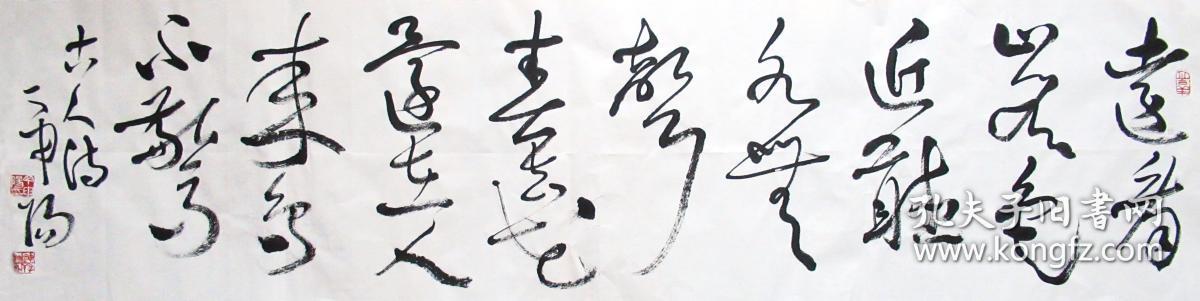 遠看
山有色
近聽
水無
聲
春去花
還在人
來鳥
不驚
古人詩
孔夫子旧书网
www.kongfz.com